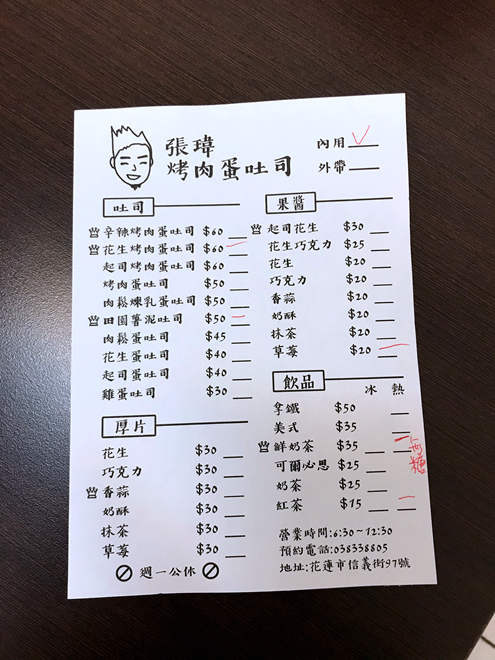 張瑋
烤肉蛋吐司
內用 ✓
外帶
吐司
辛辣烤肉蛋吐司 $60
花生烤肉蛋吐司 $60 一
起司烤肉蛋吐司 $60
烤肉蛋吐司 $50
肉鬆煉乳蛋吐司 $50
田園薯泥吐司 $50 二
肉鬆蛋吐司 $45
花生蛋吐司 $40
起司蛋吐司 $40
雞蛋吐司 $30
厚片
花生 $30
巧克力 $30
香蒜 $30
奶酥 $30
抹茶 $30
草莓 $30
週一公休
果醬
起司花生 $30
花生巧克力 $25
花生 $20
巧克力 $20
香蒜 $20
奶酥 $20
抹茶 $20
草莓 $20 一
飲品 冰 熱
拿鐵 $50
美式 $35
鮮奶茶 $35 一
可爾必思 $25
奶茶 $25
紅茶 $15 一
糖
營業時間:6:30~12:30
預約電話:038338805
地址:花蓮市信義街97號